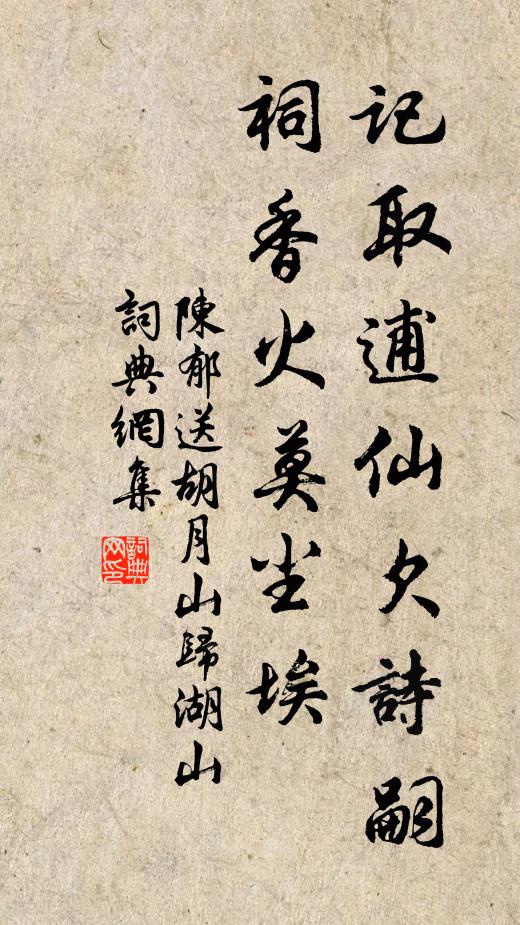 记取逋仙欠詩嗣
祠香火莫尘埃
陳郁送胡月山歸湖山
詞典網集
詞典网印